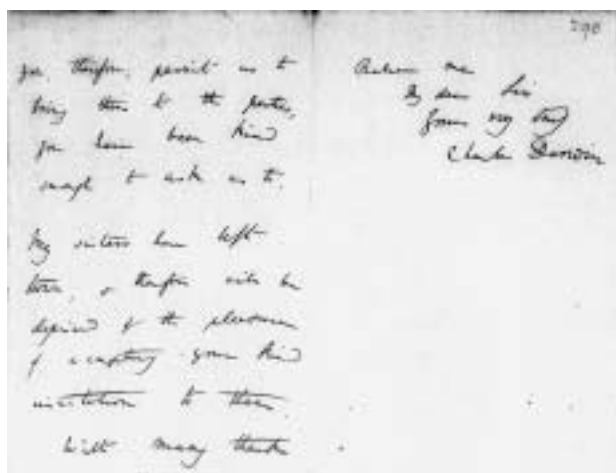 you, therefore, permit us to
bring them to the parties,
you have been kind
enough to ask us to.
My sisters have left
town, & therefore will be
deprived of the pleasure
of accepting your kind
invitation to them.
With many thanks
290
Believe me
My dear Sir
Yours very truly
Charles Darwin